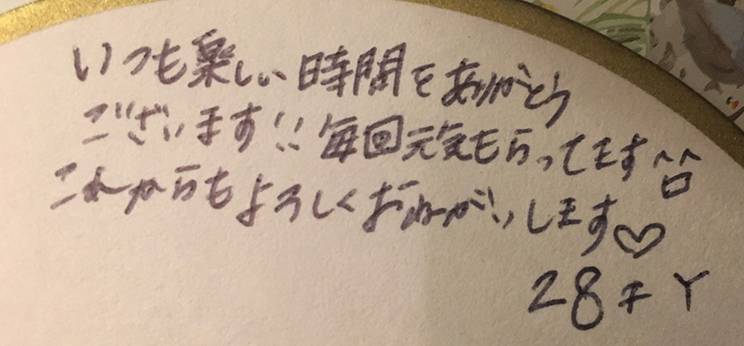 いつも楽しい時間をありがとう
ございます!! 毎回元気もらってます^ロ^
これからもよろしくおねがいします♡
28 Y